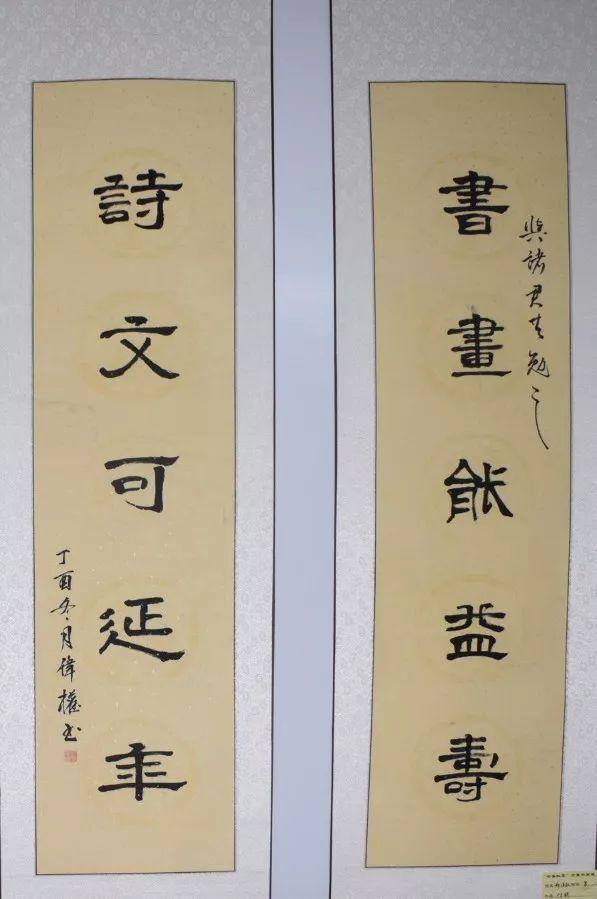 書畫能益壽
與諸君共勉之
詩文可延年
丁酉冬月偉權書